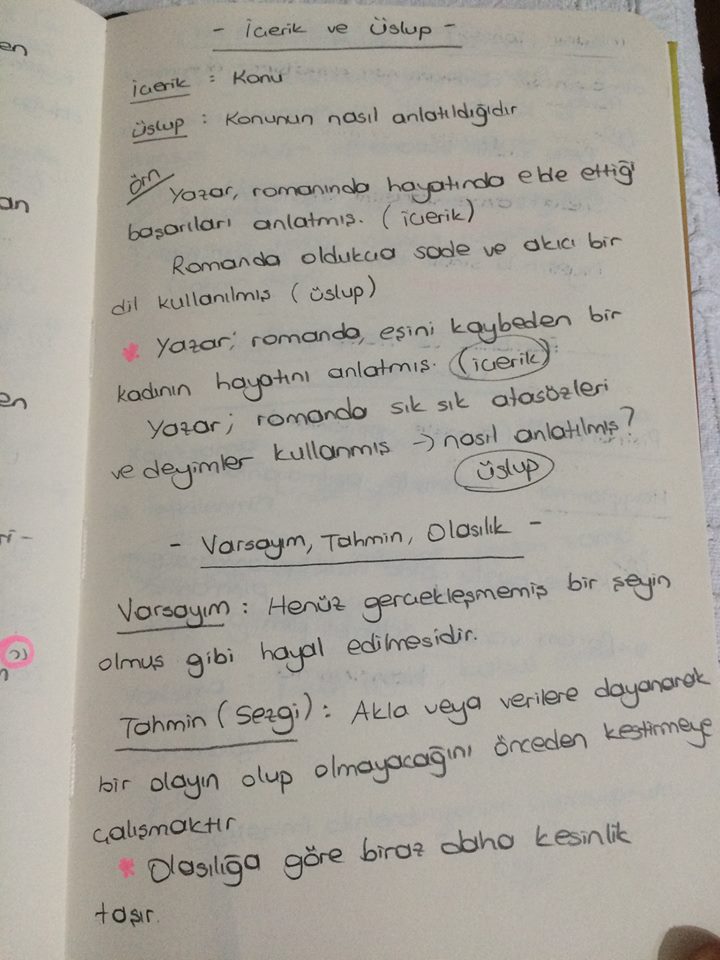 en
an
en
ri-
2)
n
- İçerik ve Üslup -
İçerik : Konu
Üslup : Konunun nasıl anlatıldığıdır
Örn
Yazar, romanında hayatında elde ettiği
başarıları anlatmış. (içerik)
Romanda oldukca sade ve akıcı bir
dil kullanılmış (üslup)
* Yazar; romanda, eşini kaybeden bir
kadının hayatını anlatmış. (içerik)
Yazar; romanda sık sık atasözleri
ve deyimler kullanmış → nasıl anlatılmış?
üslup
- Varsayım, Tahmin, Olasılık -
Varsayım : Henüz gerçekleşmemiş bir şeyin
olmuş gibi hayal edilmesidir.
Tahmin (Sezgi) : Akla veya verilere dayanarak
bir olayın olup olmayacağını önceden kestirmeye
çalışmaktır
* Olasılığa göre biraz daha kesinlik
taşır.